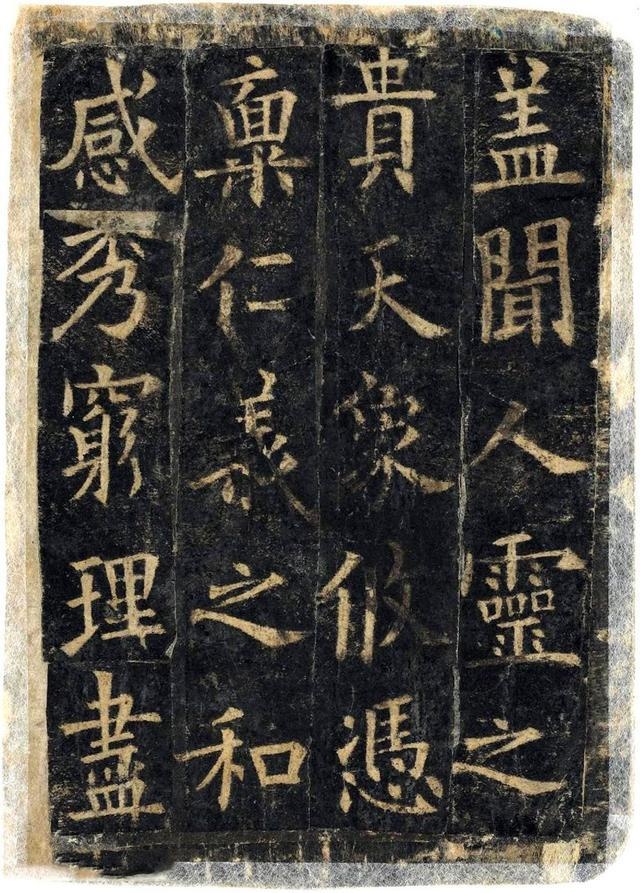 盖聞人靈之
貴天象攸憑
稟仁義之和
感秀窮理盡